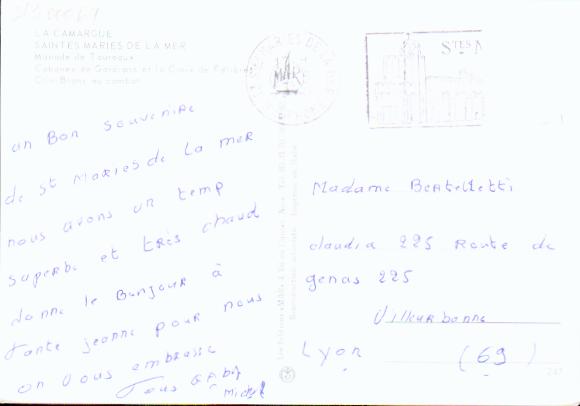 LA CAMARGUE
SAINTES MARIES DE LA MER
Manade de Taureaux
Cabanes de Gardians et la Croix de
au combat
STES M
un Bon souvenire
de St Maries de La mer
nous avons un temp
superbe et très chaud
donne le Bonjour à
tante jeanne pour nous
on vous embrasse
Tous
Michel
Madame Bertelletti
claudia 225 Route de
genas 225
Villeurbanne
Lyon (69)